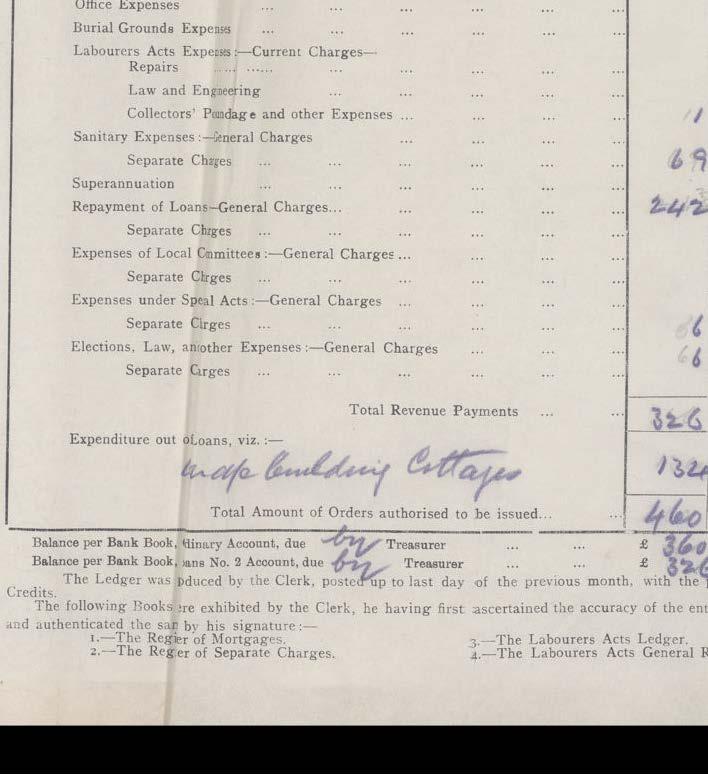 Office Expenses ... ... ... ... ...
Burial Grounds Expenses ... ... ... ... ... ...
Labourers Acts Expenses:—Current Charges—
Repairs ...... ...... ... ... ... ... ...
Law and Engneering ... ... ... ... ...
Collectors' Poundage and other Expenses ... ... ... ... 11
Sanitary Expenses:—General Charges ... ... ... ...
Separate Charges ... ... ... ... ... ... 69
Superannuation ... ... ... ... ... ...
Repayment of Loans—General Charges... ... ... ... ... 242
Separate Chrges ... ... ... ... ... ...
Expenses of Local Cmmittees:—General Charges ... ... ... ... ...
Separate Chrges ... ... ... ... ... ...
Expenses under Speal Acts:—General Charges ... ... ... ... ...
Separate Cirges ... ... ... ... ... ... 6
Elections, Law, an other Expenses:—General Charges ... ... ... 66
Separate Carges ... ... ... ... ... ...
Total Revenue Payments ... ... 326
Expenditure out o Loans, viz.:—
building Cottages 132
Total Amount of Orders authorised to be issued... ... 460
Balance per Bank Book, dinary Account, due by Treasurer ... ... £ 360
Balance per Bank Book, ans No. 2 Account, due by Treasurer ... ... £ 326
The Ledger was pduced by the Clerk, posted up to last day of the previous month, with the
Credits.
The following Books ere exhibited by the Clerk, he having first ascertained the accuracy of the ent
and authenticated the sam by his signature:—
1.—The Regier of Mortgages. 3.—The Labourers Acts Ledger.
2.—The Regier of Separate Charges. 4.—The Labourers Acts General R